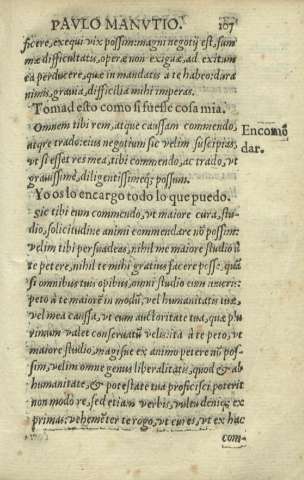 PAVLO MANVTIO. 107
ficere, exequi vix possim: magni negotij est, sum
mæ difficultatis, operæ non exiguæ, ad exitum
ea perducere, quæ in mandatis à te habeo: dura
nimis, gravia, difficilia mihi imperas.
Tomad esto como si fuesse cosa mia.
Omnem tibi rem, atque caussam commendo,
atq̃re trado: eius negotium sic velim suscipias,
vt si esset res mea, tibi commendo, ac trado, vt
gravissimè, diligentissimeq; possum.
Encomẽ
dar.
Yo os lo encargo todo lo que puedo.
Sic tibi eum commendo, vt maiore cura, stu-
dio, solicitudine animi commendare nõ possim:
velim tibi persuadeas, nihil me maiore studio à
te petere, nihil te mihi gratius facere posse: quã
si omnibus tuis opibus, omni studio eum iuveris:
peto à te maiorẽ in modũ, vel humanitatis tuæ,
vel mea caussa, vt eum auctoritate tua, quæ plu
rimum valet conservatũ velis: ita à te peto, vt
maiore studio, magisue ex animo petere nõ pos-
sim, velim omne genus liberalitatis, quod & ab
humanitate, & potestate tua proficisci poterit
non modo re, sed etiam verbis, vultu deniq; ex
primas: vehemẽter te rogo, vt cures, vt ex hac
com-